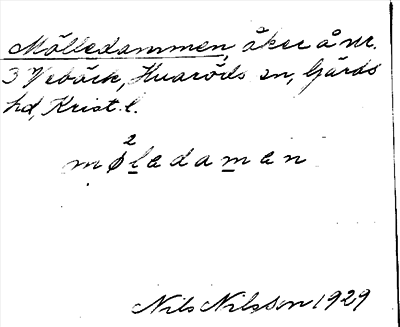 Mölledammen, åker å nr.
3 Vebäck, Huaröds sn, Gärds
hd, Krist. l.
2
møledamen
Nils Nilsson 1929